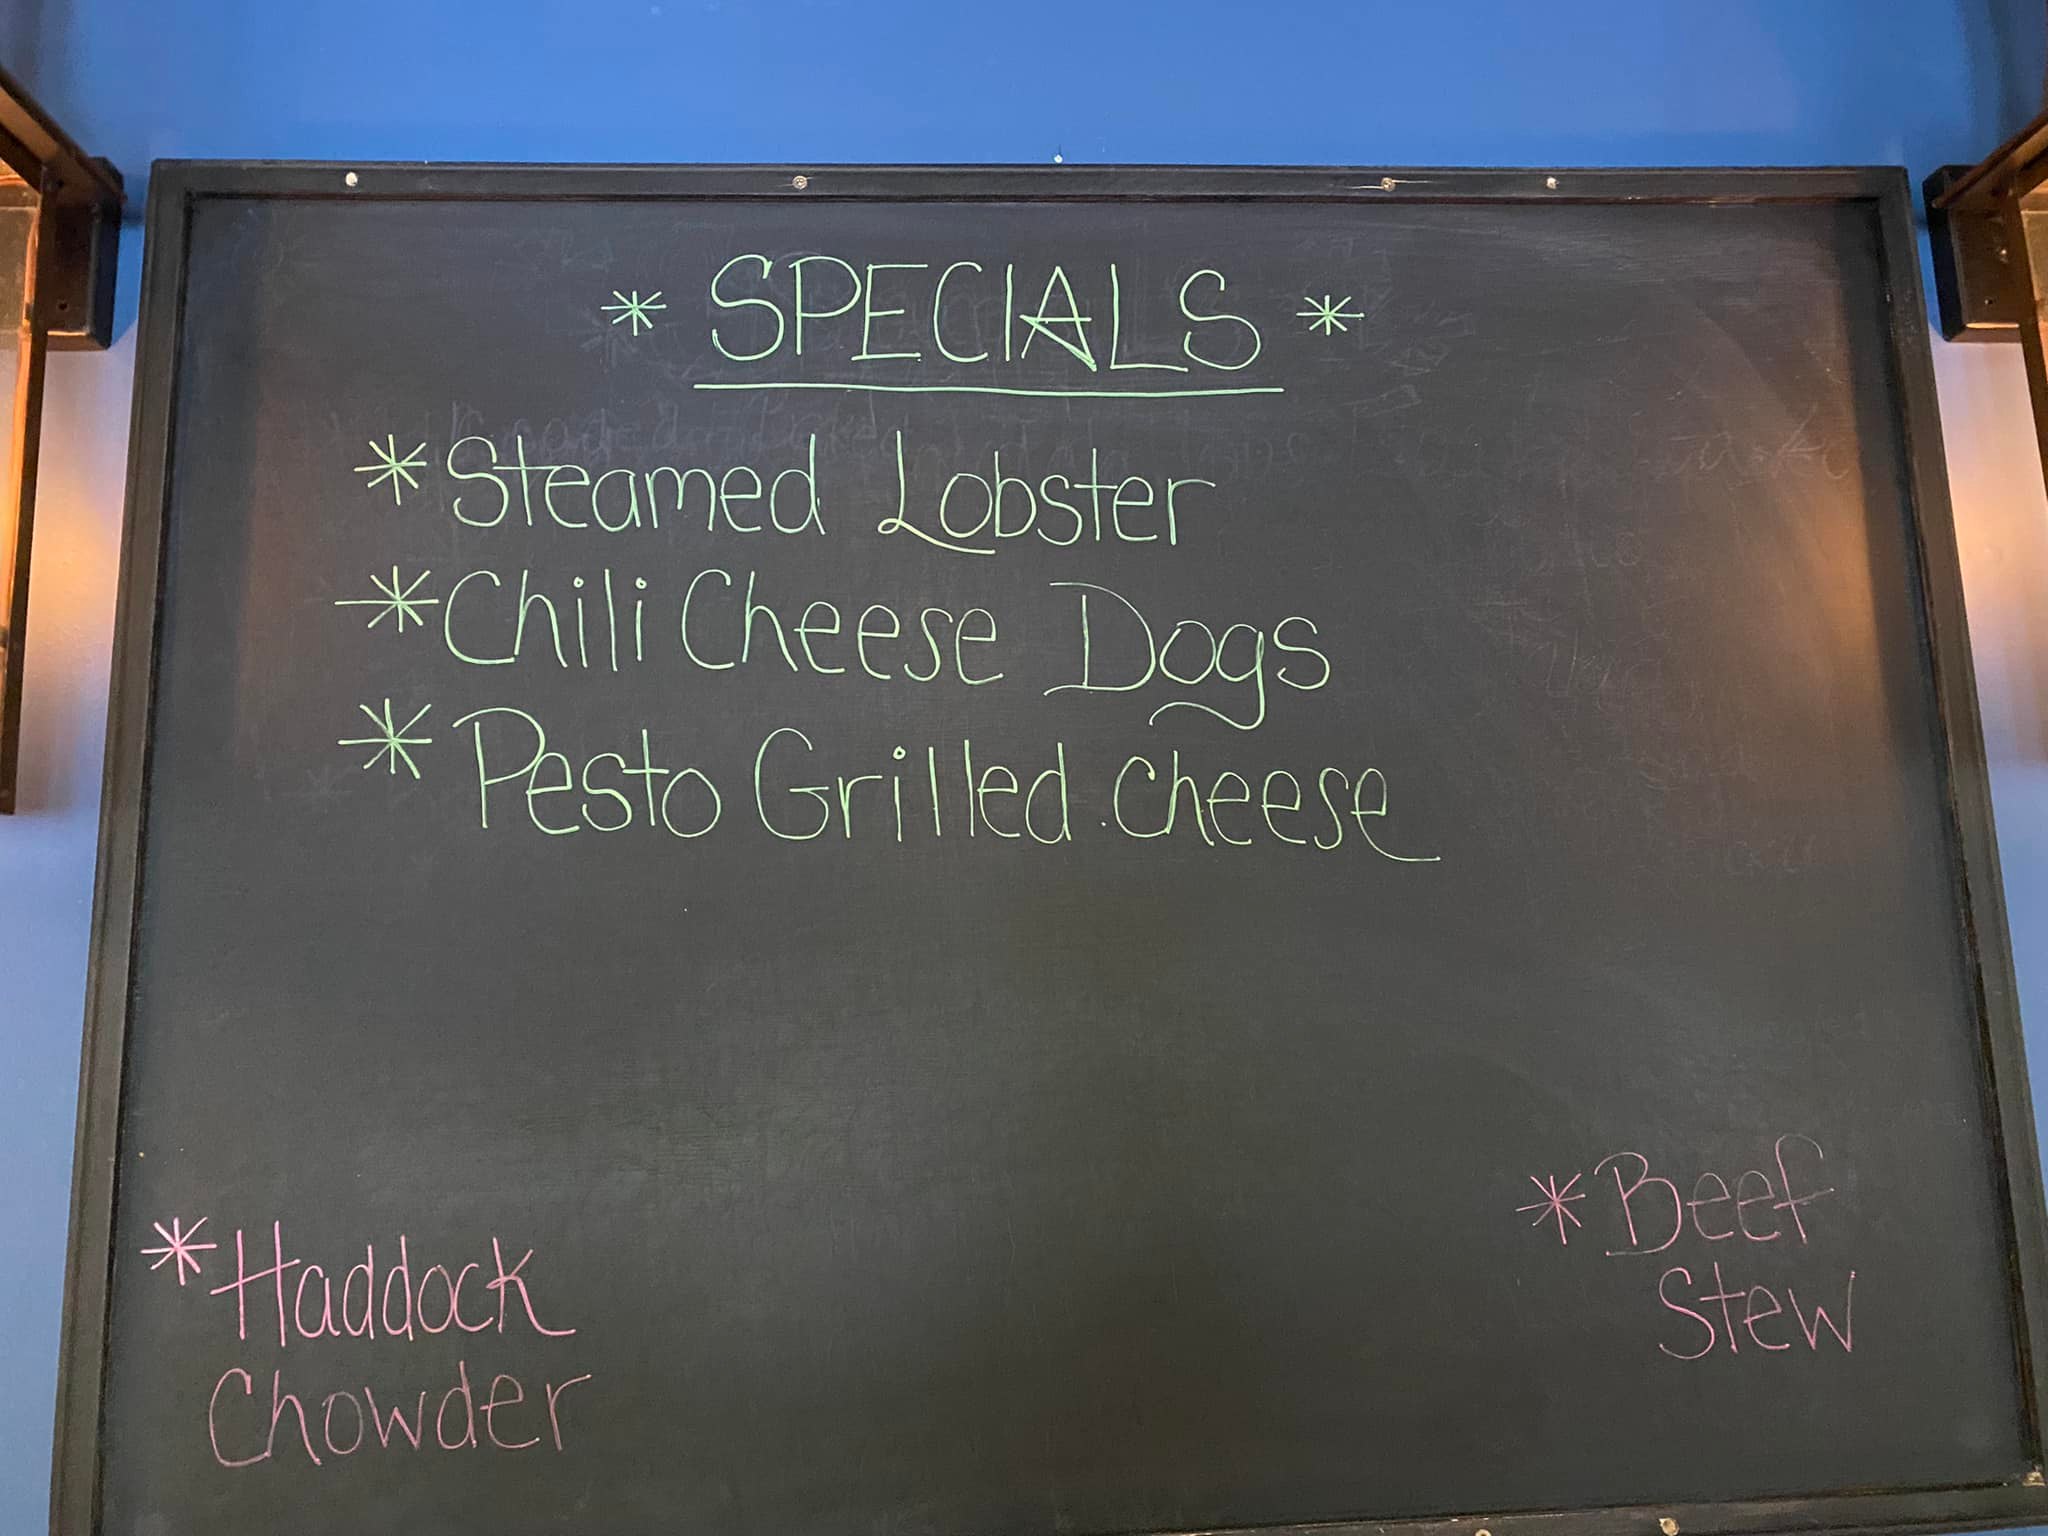 * SPECIALS *
* Steamed Lobster
* Chili Cheese Dogs
* Pesto Grilled Cheese
* Haddock
Chowder
* Beef
Stew